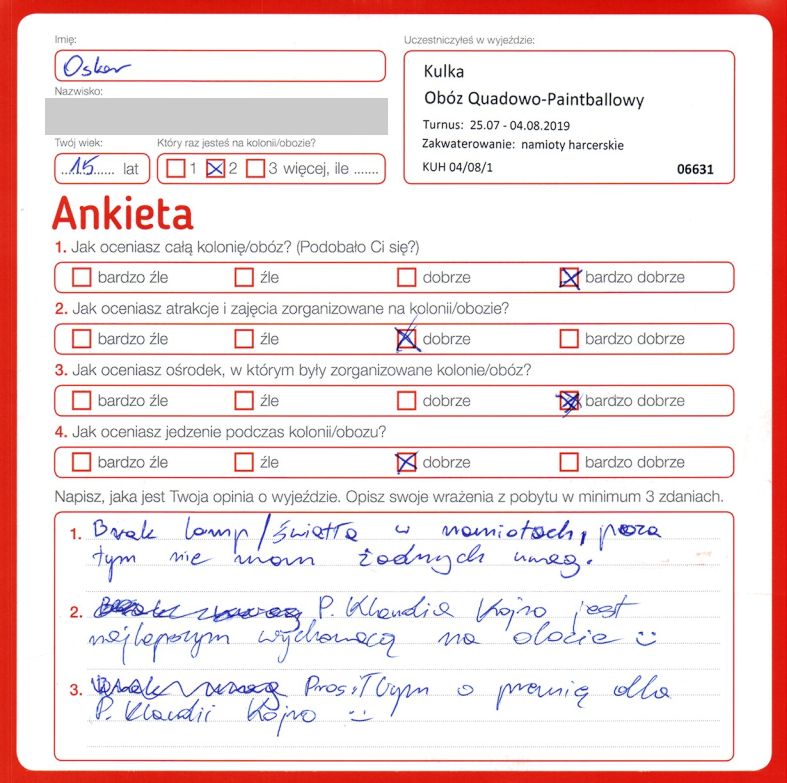 Imię:
Oskar
Nazwisko:
Twój wiek:
15 lat
Który raz jesteś na kolonii/obozie?
1 2 3 więcej, ile .......
Uczestniczyłeś w wyjeździe:
Kulka
Obóz Quadowo-Paintballowy
Turnus: 25.07 - 04.08.2019
Zakwaterowanie: namioty harcerskie
KUH 04/08/1 06631
Ankieta
1. Jak oceniasz całą kolonię/obóz? (Podobało Ci się?)
bardzo źle źle dobrze bardzo dobrze
2. Jak oceniasz atrakcje i zajęcia zorganizowane na kolonii/obozie?
bardzo źle źle dobrze bardzo dobrze
3. Jak oceniasz ośrodek, w którym były zorganizowane kolonie/obóz?
bardzo źle źle dobrze bardzo dobrze
4. Jak oceniasz jedzenie podczas kolonii/obozu?
bardzo źle źle dobrze bardzo dobrze
Napisz, jaka jest Twoja opinia o wyjeździe. Opisz swoje wrażenia z pobytu w minimum 3 zdaniach.
1. Brak lamp/światła w namiotach, poza
tym nie mam żadnych uwag.
2. P. Klaudia Kojro jest
najlepszym wychowacą na obozie :)
3. Prosiłbym o premię dla
P. Klaudii Kojro :)